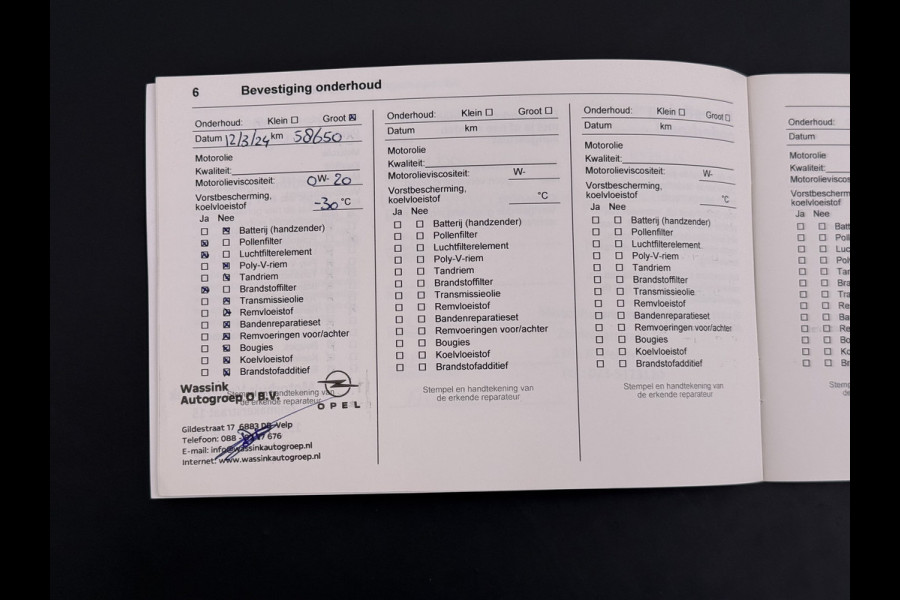 6 Bevestiging onderhoud
Onderhoud: Klein Groot
Datum 12/3/24 km 58650
Motorolie
Kwaliteit:
Motorolieviscositeit: 0W-20
Vorstbescherming,
koelvloeistof -30 °C
Ja Nee
Batterij (handzender)
Pollenfilter
Luchtfilterelement
Poly-V-riem
Tandriem
Brandstoffilter
Transmissieolie
Remvloeistof
Bandenreparatieset
Remvoeringen voor/achter
Bougies
Koelvloeistof
Brandstofadditief
Stempel en handtekening van
de erkende reparateur
Wassink
Autogroep O B.V.
OPEL
Gildestraat 17 6883 Velp
Telefoon: 088 676
E-mail: info@wassinkautogroep.nl
Internet: www.wassinkautogroep.nl
Onderhoud: Klein Groot
Datum km
Motorolie
Kwaliteit:
Motorolieviscositeit: W-
Vorstbescherming,
koelvloeistof °C
Ja Nee
Batterij (handzender)
Pollenfilter
Luchtfilterelement
Poly-V-riem
Tandriem
Brandstoffilter
Transmissieolie
Remvloeistof
Bandenreparatieset
Remvoeringen voor/achter
Bougies
Koelvloeistof
Brandstofadditief
Stempel en handtekening van
de erkende reparateur
Onderhoud: Klein Groot
Datum km
Motorolie
Kwaliteit:
Motorolieviscositeit: W-
Vorstbescherming,
koelvloeistof °C
Ja Nee
Batterij (handzender)
Pollenfilter
Luchtfilterelement
Poly-V-riem
Tandriem
Brandstoffilter
Transmissieolie
Remvloeistof
Bandenreparatieset
Remvoeringen voor/achter
Bougies
Koelvloeistof
Brandstofadditief
Stempel en handtekening van
de erkende reparateur
Onderhoud:
Datum
Motorolie
Kwaliteit:
Motorolieviscos
Vorstbescherming
koelvloeistof
Ja Nee
Batt
Poll
Luc
Pol
Tar
Bra
Tra
Re
Ba
Re
Bo
Ko
Br
Stemp
de